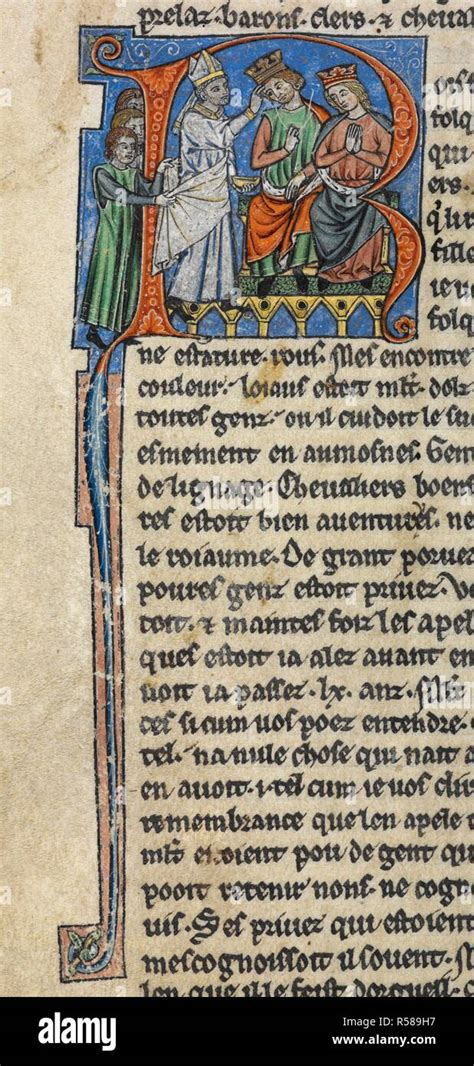 prelaz. barons. clers. & cheual
ois
folq
qui
ers.
q'lu
fille
ie
folq
ne estature. rous. Mes encontre
couleur. loiaus estoit
toutes genz. ou il cuidoit le
esmement en aumosnes. Gen
de lignage. Cheualiers boens
res estoit bien auentures. ne
le roiaume. De grant
poures genz estoit priuez.
toit. & maintes foiz les apel
ques estoit ia alez auant en
uoit ia passez .lx. anz.
ces si cum uos poez entendre.
tel. na nule chose qui nait a
en auoit. i. tel cum ie uos
remembrance que len apele
estoient pou de gent qu
pooit retenir nons. ne cogn
uis. Ses priuez qui estoient
mescognoissoit il souent.
len que il le feist dorguell. c
alamy
a
Image ID: R589H7
www.alamy.com